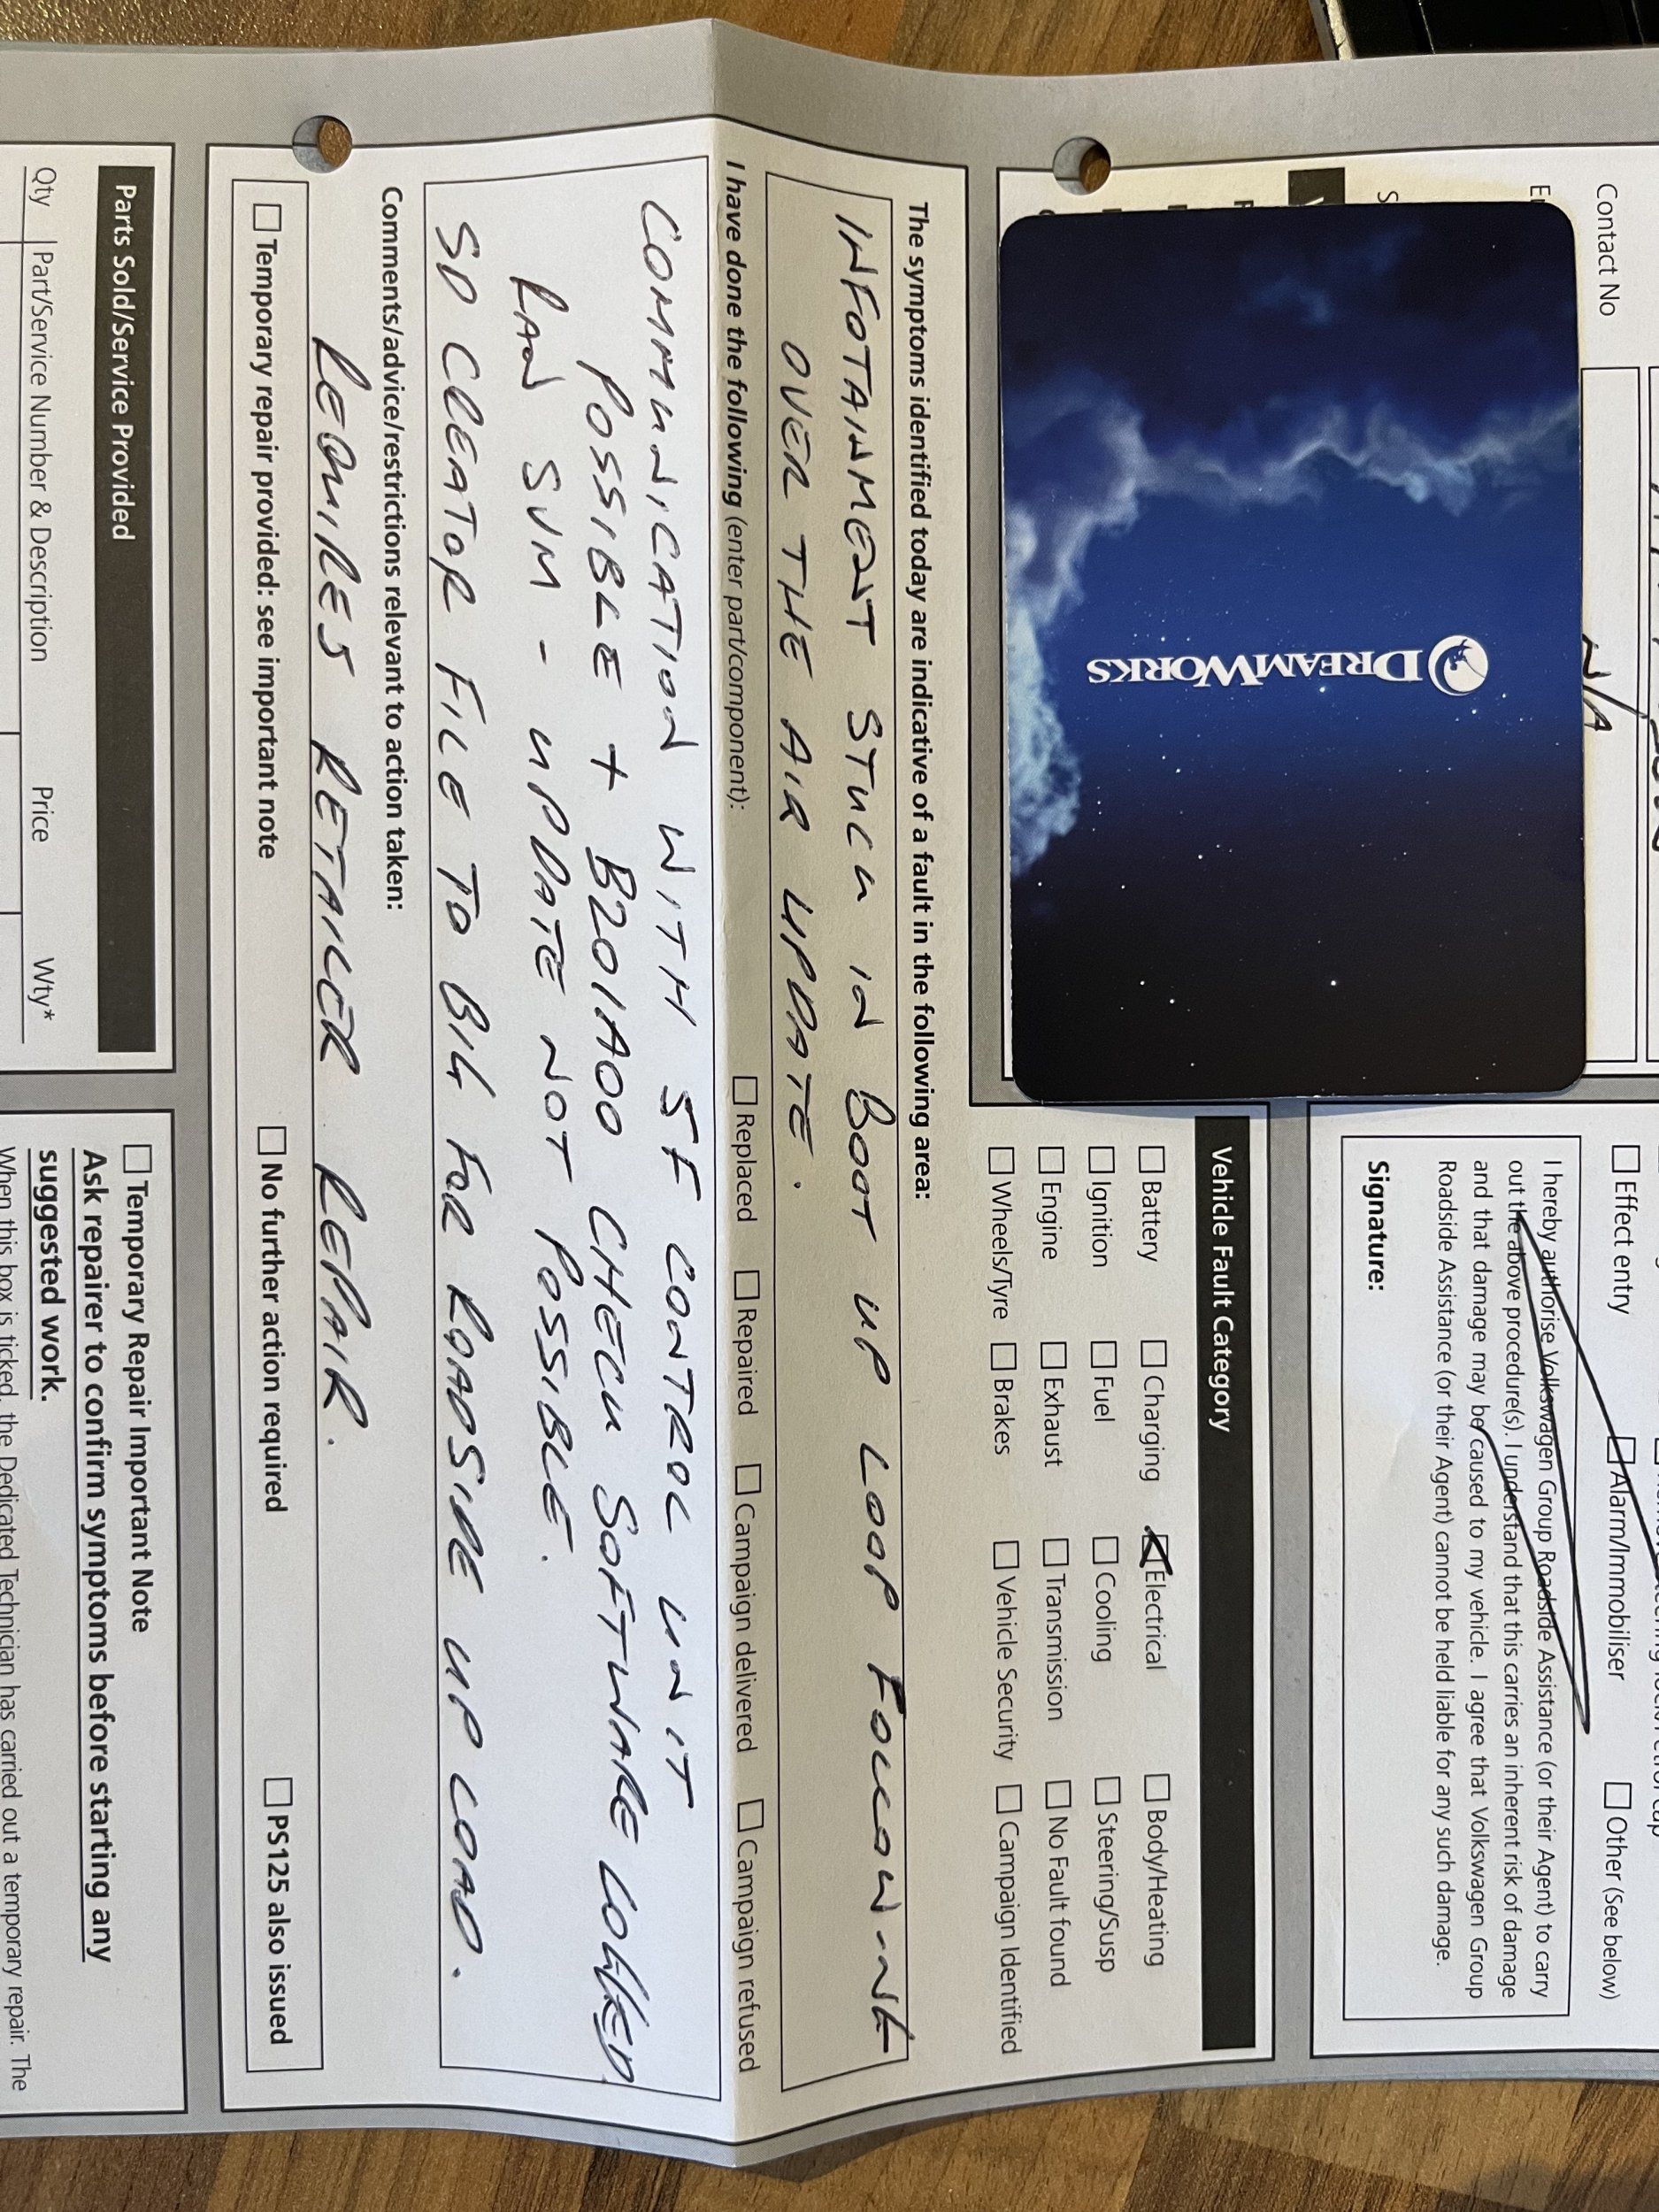 Contact No
N/A
DREAMWORKS
Effect entry
Alarm/Immobiliser
Other (See below)
I hereby authorise Volkswagen Group Roadside Assistance (or their Agent) to carry
out the above procedure(s). I understand that this carries an inherent risk of damage
and that damage may be caused to my vehicle. I agree that Volkswagen Group
Roadside Assistance (or their Agent) cannot be held liable for any such damage.
Signature:
Vehicle Fault Category
Battery Charging Electrical Body/Heating
Ignition Fuel Cooling Steering/Susp
Engine Exhaust Transmission No Fault found
Wheels/Tyre Brakes Vehicle Security Campaign Identified
The symptoms identified today are indicative of a fault in the following area:
INFOTAINMENT STUCK IN BOOT UP LOOP FOLLOWING
OVER THE AIR UPDATE.
I have done the following (enter part/component): Replaced Repaired Campaign delivered Campaign refused
COMMUNICATION WITH 5F CONTROL UNIT
POSSIBLE + B201A00 CHECK SOFTWARE LOGGED
RAN SVM - UPDATE NOT POSSIBLE.
SD CREATOR FILE TO BIG FOR ROADSIDE UPLOAD.
Comments/advice/restrictions relevant to action taken:
REQUIRES RETAILER REPAIR.
Temporary repair provided: see important note No further action required PS125 also issued
Parts Sold/Service Provided
Qty Part/Service Number & Description Price Wty*
Temporary Repair Important Note
Ask repairer to confirm symptoms before starting any
suggested work.
When this box is ticked, the Dedicated Technician has carried out a temporary repair. The